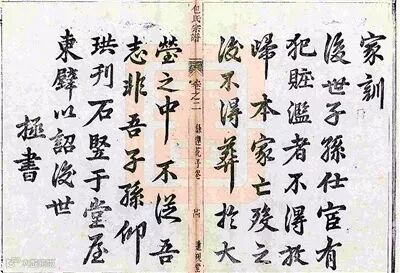 家訓
後世子孫仕宦有
犯賍濫者不得放
歸本家亡殁之
後不得葬於大
包氏宗譜
卷之二
塋之中不從吾
志非吾子孫仰
珙刊石竪于堂屋
東壁以詔後世
拯書